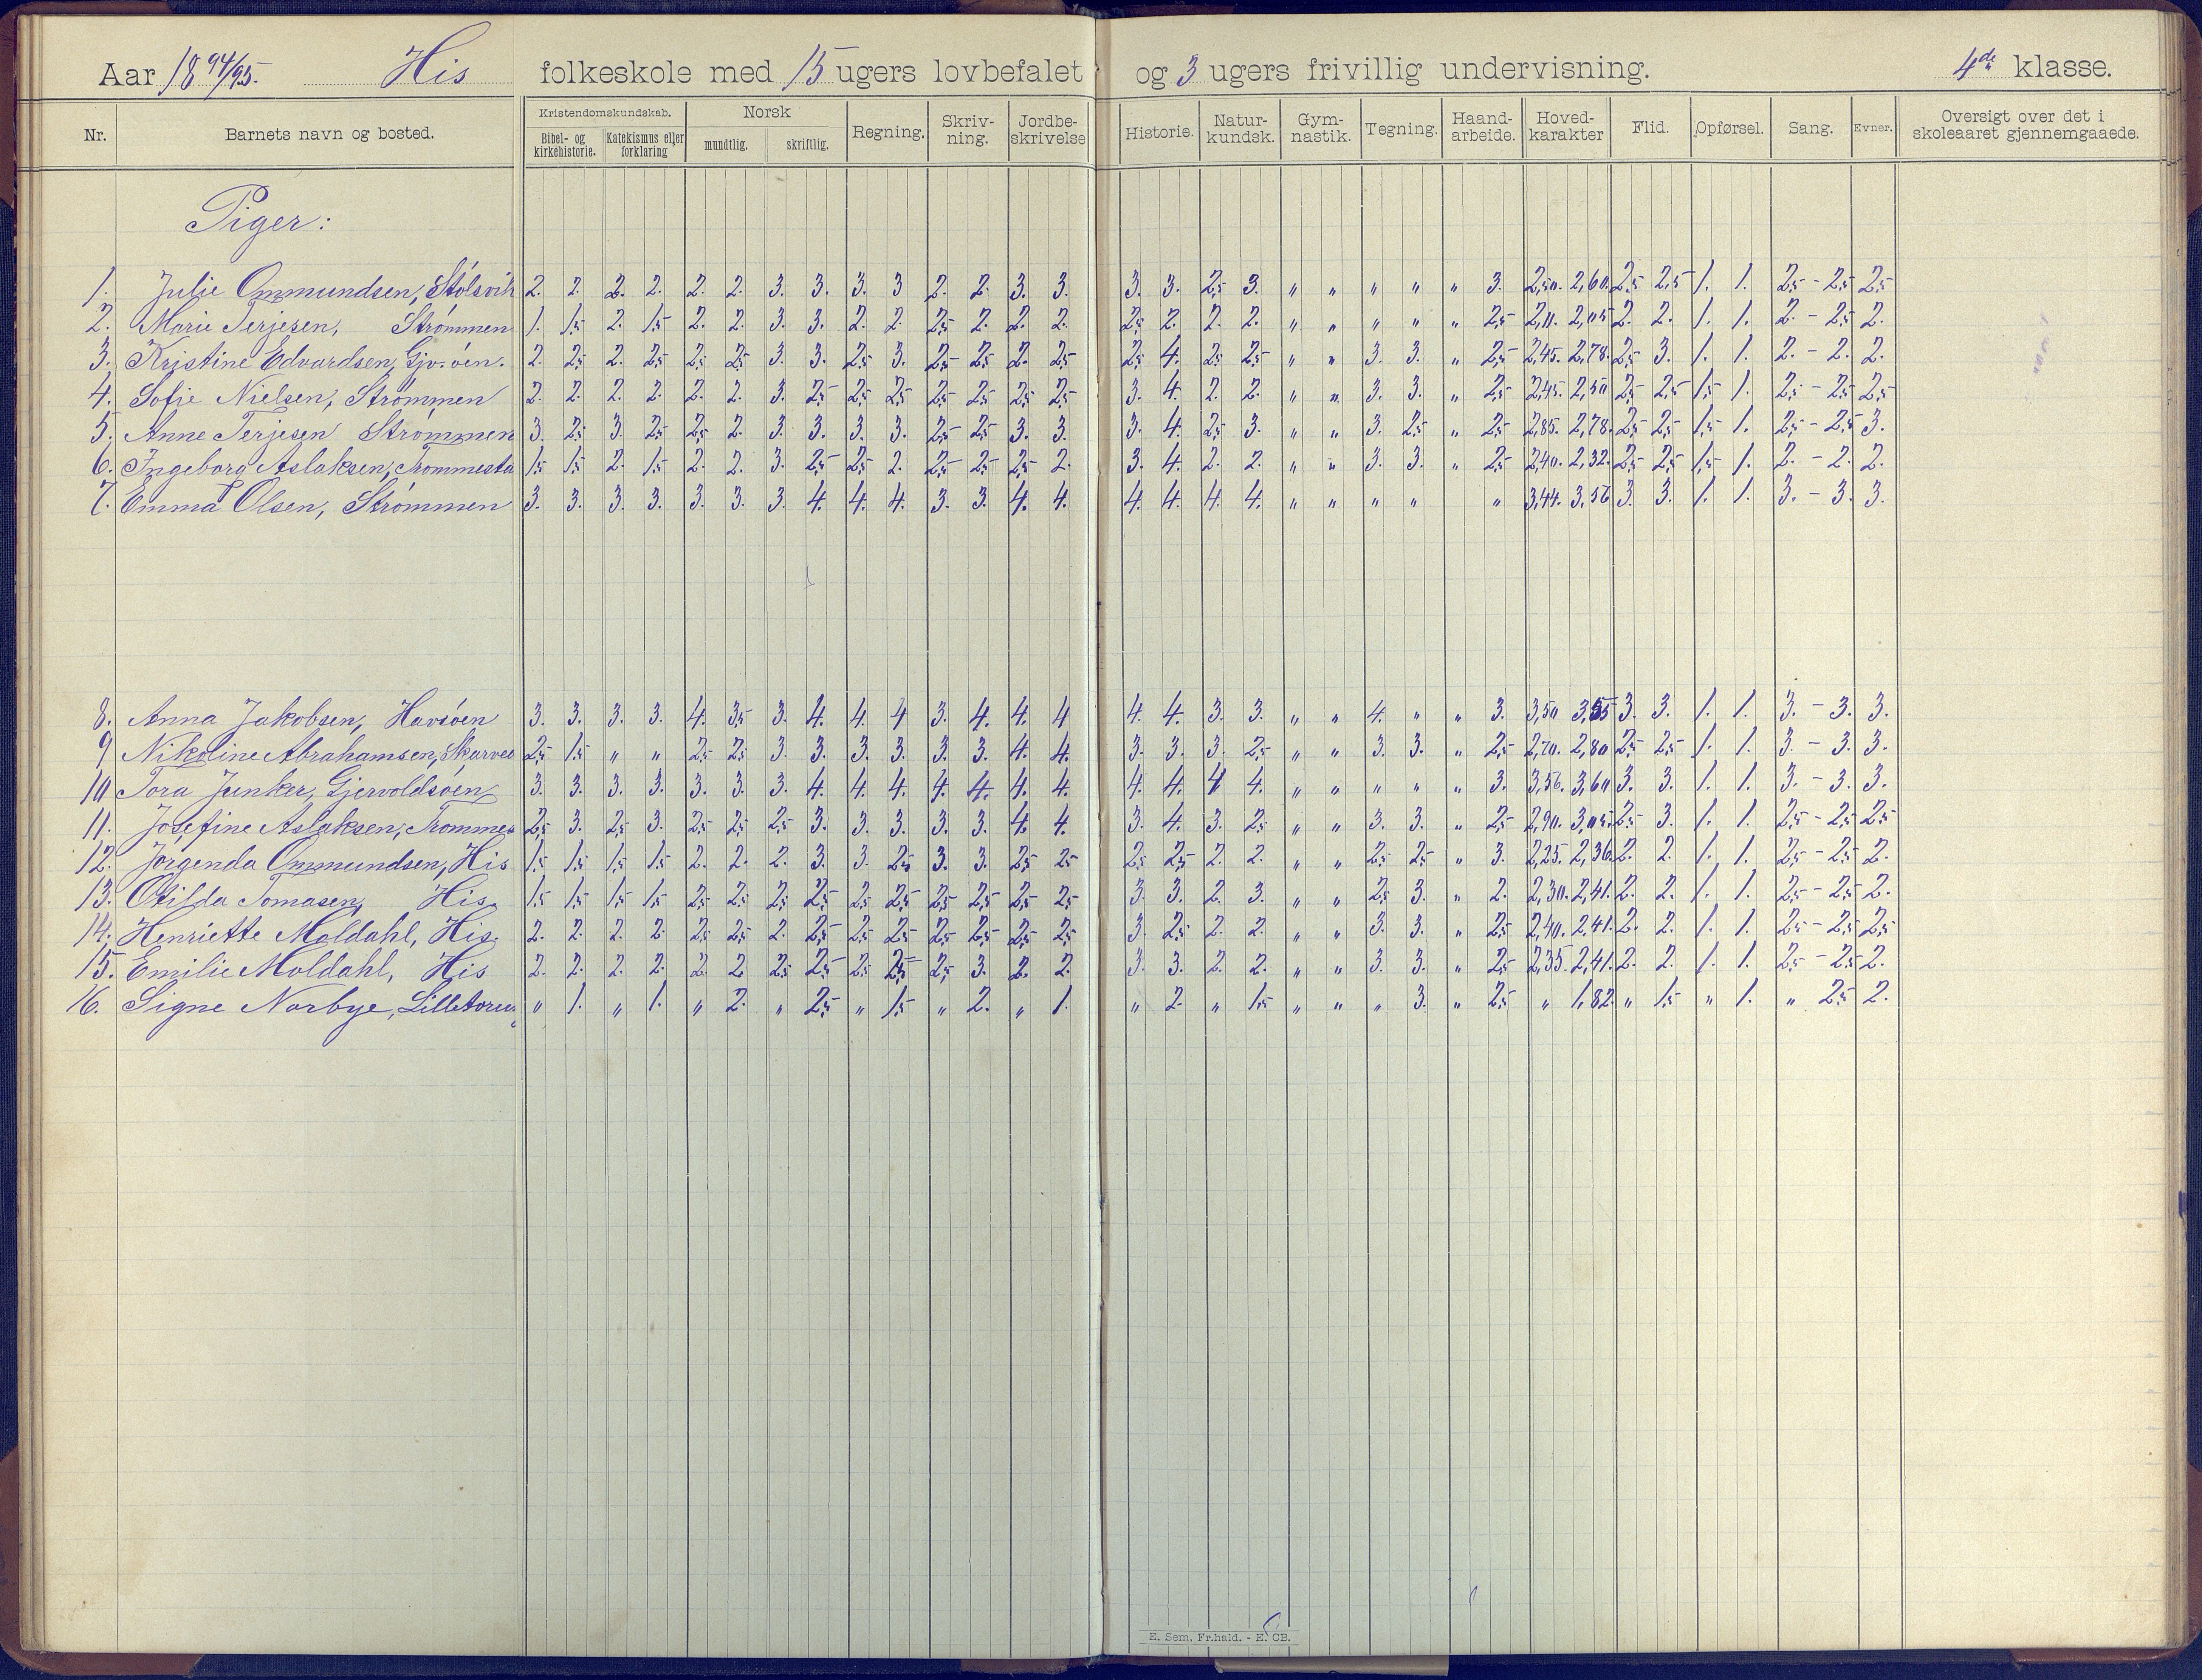 Aar 1894/95. His folkeskole med 15 ugers lovbefalet og 3 ugers frivillig undervisning. 4de klasse.
Nr. Barnets navn og bosted. Kristendomskundskab. Bibel- og kirkehistorie. Katekismus eller forklaring Norsk mundtlig. skriftlig. Regning. Skriv-ning. Jordbe-skrivelse Historie. Natur-kundsk. Gym-nastik. Tegning. Haand-arbeide. Hoved-karakter Flid. Opførsel. Sang. Evner. Oversigt over det i skoleaaret gjennemgaaede.
Piger:
1. Julie Ommundsen, Stølsvik 2. 2. 2. 2. 2. 2. 3. 3. 3. 3 2. 2. 3. 3. 3. 3. 2,5 3. " " " " " 3. 2,50. 2,60. 2,5 2,5 1. 1. 2,5 - 2,5 2,5
2. Marie Terjesen, Strømmen 1. 1,5 2. 1,5 2. 2. 3. 3. 2. 2. 2,5 2. 2. 2. 2,5 2. 2. 2. " " " " " 2,5 2,11. 2,05 2. 2. 1. 1. 2. - 2,5 2.
3. Kristine Edvardsen, Gjv.öen. 2. 2,5 2. 2,5 2,5 2,5 3. 3. 2,5 3. 2,5 2,5 2. 2,5 2,5 4. 2,5 2,5 " " 3. 3. " 2,5 2,45. 2,78. 2,5 3. 1. 1. 2. - 2. 2.
4. Sofie Nielsen, Strømmen 2. 2. 2. 2. 2. 2. 3. 2,5 2,5 2,5 2,5 2,5 2,5 2,5 3. 4. 2. 2. " " 3. 3. " 2,5 2,45. 2,50 2,5 2,5 1,5 1. 2,5 - 2,5 2,5
5. Anne Terjesen Strømmen 3. 2,5 3. 2,5 2,5 2. 3. 3. 3. 3. 2,5 2,5 3. 3. 3. 4. 2,5 3. " " 3. 2,5 " 2,5 2,85. 2,78. 2,5 2,5 1,5 1. 2,5 - 2,5 3.
6. Ingeborg Aslaksen, Trommesta 1,5 1,5 2. 1,5 2. 2. 3. 2,5 2,5 2. 2,5 2,5 2,5 2. 3. 4. 2. 2. " " 3. 3. " 2,5 2,40. 2,32. 2,5 2,5 1,5 1. 2. - 2. 2.
7. Emma Olsen, Strømmen 3. 3. 3. 3. 3. 3. 3. 4. 4. 4. 3. 3. 4. 4. 4. 4. 4. 4. " " " " " 3,44. 3,56 3. 3. 1. 1. 3. - 3. 3.
8. Anna Jakobsen, Havsöen 3. 3. 3. 3. 4. 3,5 3. 4. 4. 4 3. 4. 4. 4 4. 4. 3. 3. " " 4. " " 3. 3,50 3,55 3. 3. 1. 1. 3. - 3. 3.
9 Nikoline Abrahamsen, Skarves 2,5 1,5 " " 2,5 2,5 3. 3. 3. 3. 3. 3. 4. 4. 3. 3. 3. 2,5 " " 3. 3. " 2,5 2,70. 2,80 2,5 2,5 1. 1. 3. - 3. 3.
10 Tora Junker, Gjervoldsöen 3. 3. 3. 3. 3. 3. 3. 4. 4. 4. 4. 4. 4. 4. 4. 4. 4 4. " " " " " 3. 3,56. 3,60 3. 3. 1. 1. 3. - 3. 3.
11. Josefine Aslaksen, Trommes 2,5 3. 2,5 3. 2,5 2,5 2,5 3. 3. 3. 3. 3. 4. 4. 3. 4. 3. 2,5 " " 3. 3. " 2,5 2,90. 3,05. 2,5 3. 1. 1. 2,5 - 2,5 2,5
12. Jørgenda Ommundsen, His 1,5 1,5 1,5 1,5 2. 2. 2. 3. 3. 2,5 3. 3. 2,5 2,5 2,5 2,5 2. 2. " " 2,5 2,5 " 3. 2,25. 2,36. 2. 2. 1. 1. 2,5 - 2,5 2.
13. Otilda Tomasen, His. 1,5 1,5 1,5 1,5 2,5 2,5 2,5 2,5 2,5 2,5 2,5 2,5 2,5 2,5 3. 3. 2. 3. " " 2,5 3. " 2. 2,30. 2,41. 2. 2. 1. 1. 2,5 - 2,5 2.
14. Henriette Moldahl, His. 2. 2. 2. 2. 2,5 2,5 2. 2,5 2,5 2,5 2,5 2,5 2,5 2,5 3. 2,5 2. 2. " " 3. 3. " 2,5 2,40. 2,41. 2. 2. 1. 1. 2,5 - 2,5 2,5
15. Emilie Moldahl, His 2. 2. 2. 2. 2. 2. 2,5 2,5 2,5 2,5 2,5 3. 2. 2. 3. 3. 2. 2. " " 3. 3. " 2,5 2,35. 2,41. 2. 2. 1. 1. 2,5 - 2,5 2.
16. Signe Norbye, Lilletorun " 1. " 1. " 2. " 2,5 " 1,5 " 2. " 1. " 2. " 1,5 " " " 3. " 2,5 " 1,82. " 1,5 " 1. " 2,5 2.
E. Sem, Fr.hald. - E. CB.